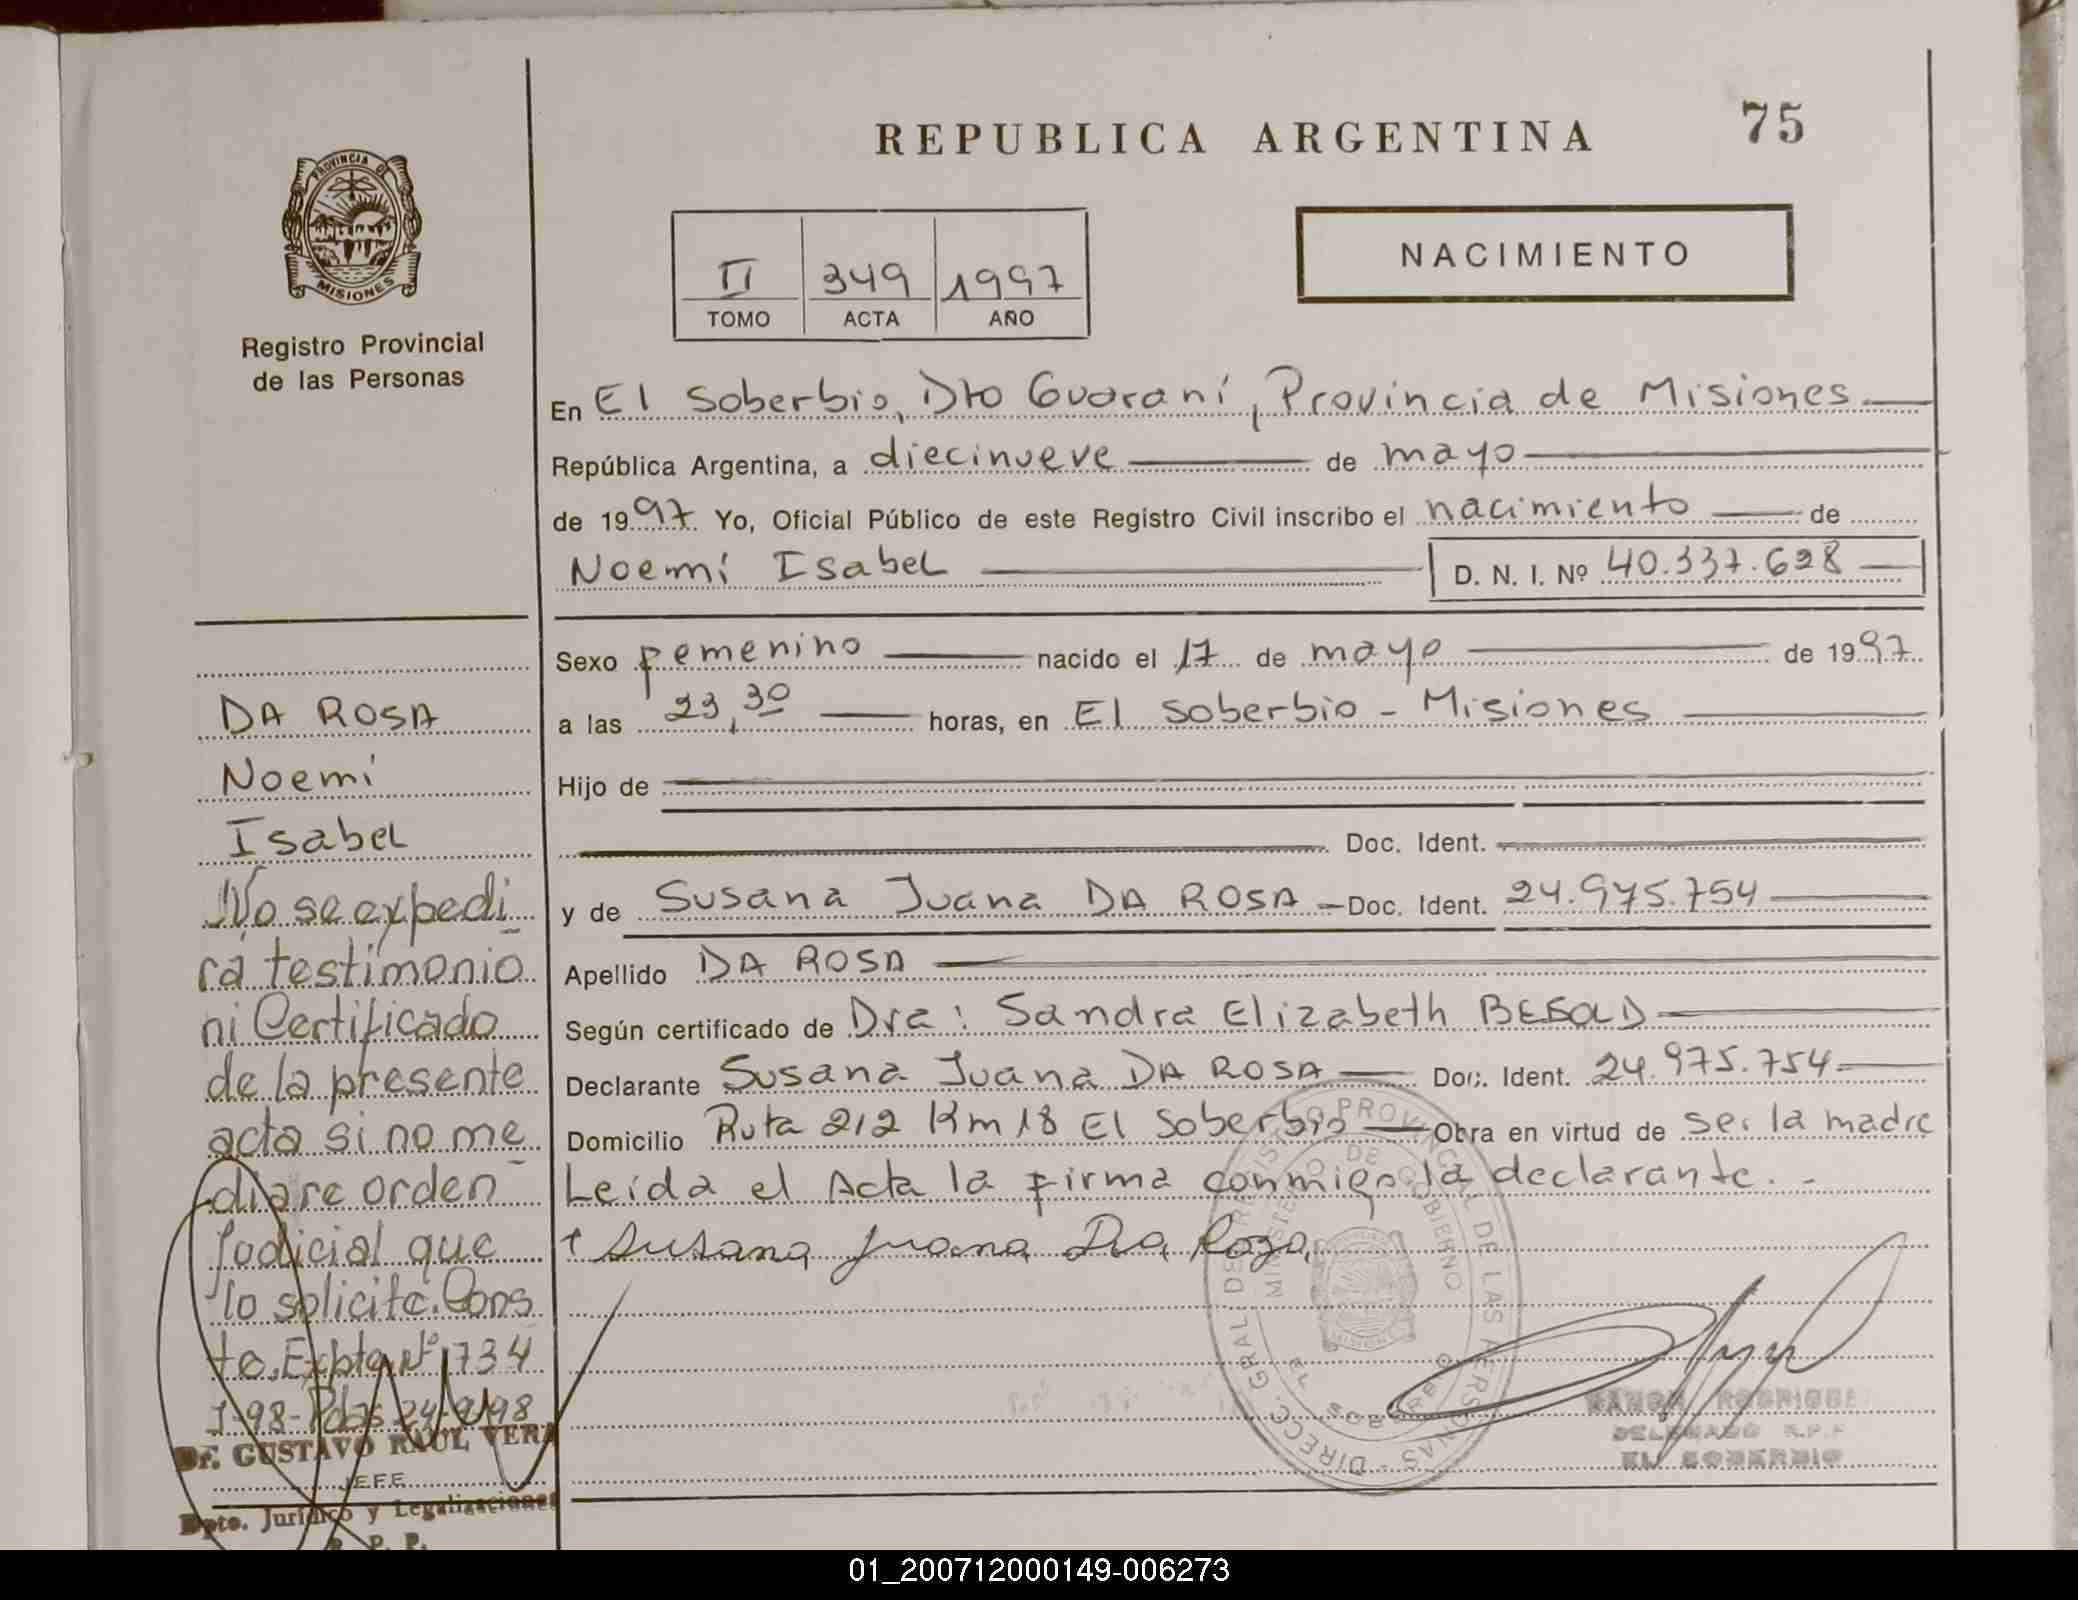 REPUBLICA ARGENTINA
75
PROVINCIA DE
MISIONES
Registro Provincial
de las Personas
NACIMIENTO
II 349 1997
TOMO ACTA AÑO
En El Soberbio, Dto Guaraní, Provincia de Misiones
República Argentina, a diecinueve de mayo
de 1997 Yo, Oficial Público de este Registro Civil inscribo el nacimiento de
Noemí Isabel D. N. I. Nº 40.337.628
Sexo femenino nacido el 17 de mayo de 1997
a las 23,30 horas, en El Soberbio - Misiones
Hijo de
Doc. Ident.
y de Susana Juana DA ROSA - Doc. Ident. 24.975.754
Apellido DA ROSA
Según certificado de Dra: Sandra Elizabeth BESOLD
Declarante Susana Juana DA ROSA Doc. Ident. 24.975.754
Domicilio Ruta 212 Km 18 El Soberbio Obra en virtud de ser la madre
Leída el Acta la firma conmigo la declarante. -
+ Susana Juana Da Roza
DIRECC. GRAL. DE REGISTRO PROVINCIAL DE LAS PERSONAS -
MINISTERIO DE GOBIERNO
EL SOBERBIO
RAMON RODRIGUEZ
DELEGADO R.P.P.
EL SOBERBIO
DA ROSA
Noemí
Isabel
No se expedi
rá testimonio
ni Certificado
de la presente
acta si no me
diare orden
Judicial que
lo solicite. Cons
te. Expte. Nº 1734
J-98-Pdas 24-9-98
Dr. GUSTAVO RAUL VERA
JEFE
Dpto. Jurídico y Legalizaciones
R. P. P.
01_200712000149-006273